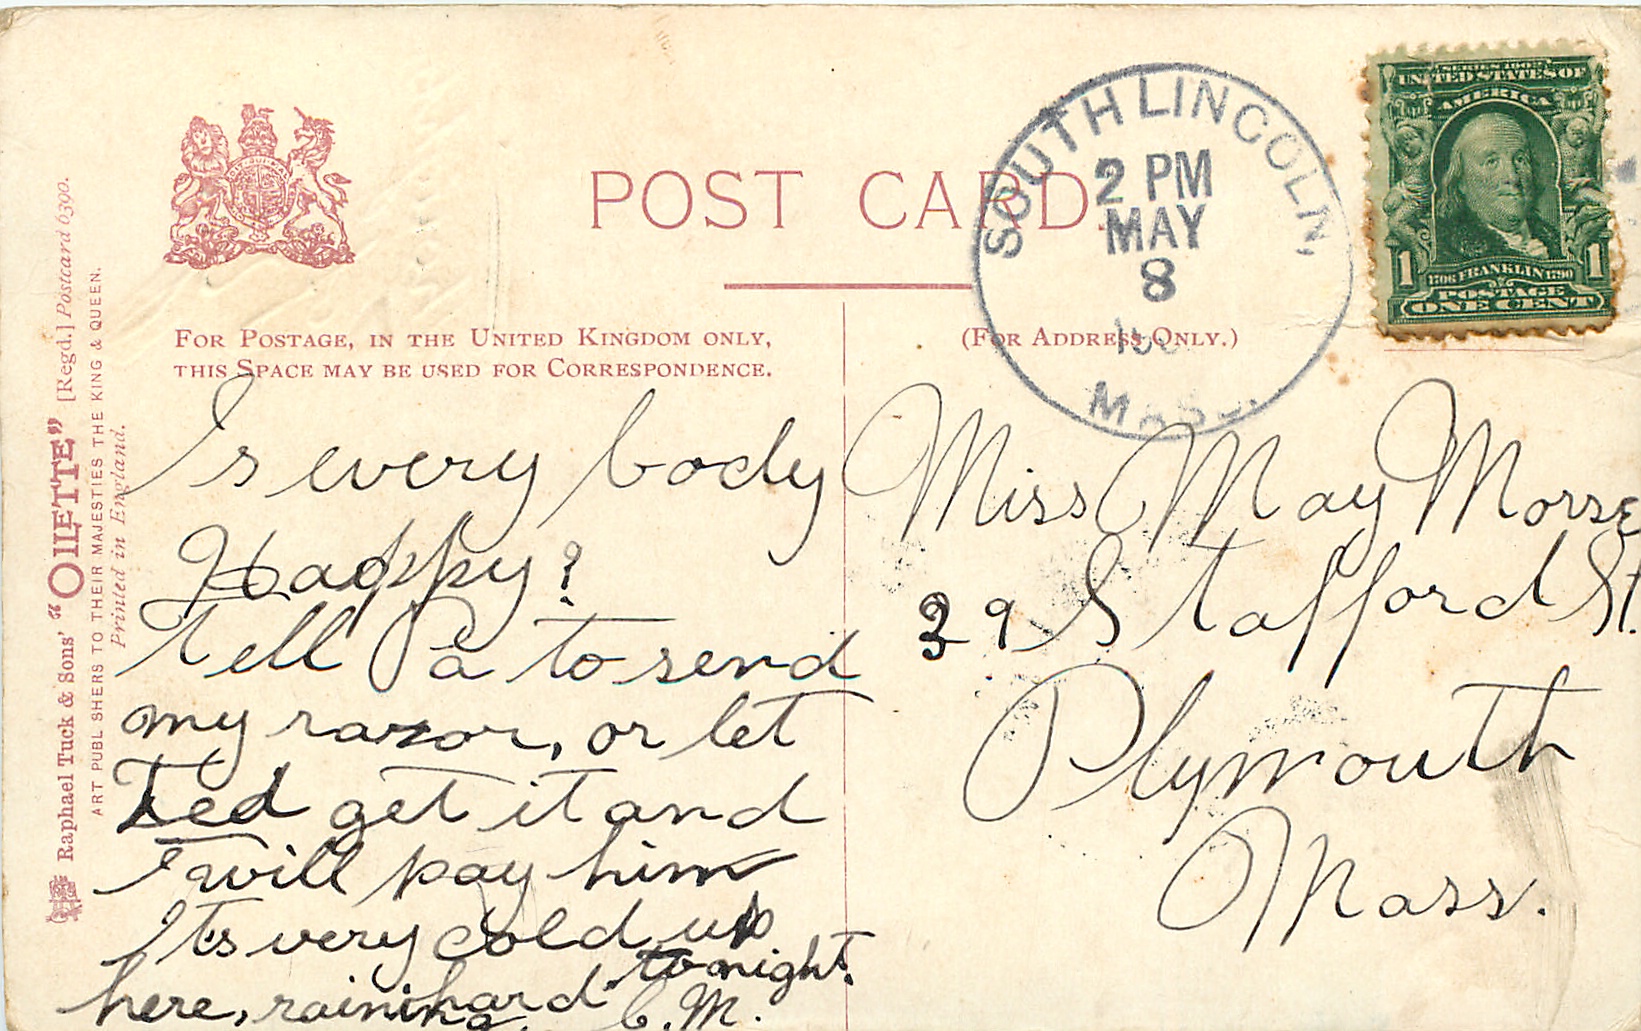 POST CARD.
FOR POSTAGE, IN THE UNITED KINGDOM ONLY,
THIS SPACE MAY BE USED FOR CORRESPONDENCE.
(FOR ADDRESS ONLY.)
Raphael Tuck & Sons' "OILETTE" [Regd.] Postcard 6390.
ART PUBLISHERS TO THEIR MAJESTIES THE KING & QUEEN.
Printed in England.
SOUTH LINCOLN,
2 PM
MAY
8
MASS.
SERIES 1902
UNITED STATES OF
AMERICA
1 1706 FRANKLIN 1790 1
POSTAGE
ONE CENT
Is every body
Happy?
Tell Pa to send
my razor, or let
Ted get it and
I will pay him
Its very cold up
here, raining hard tonight.
C.M.
Miss May Morse
39 Stafford St.
Plymouth
Mass.